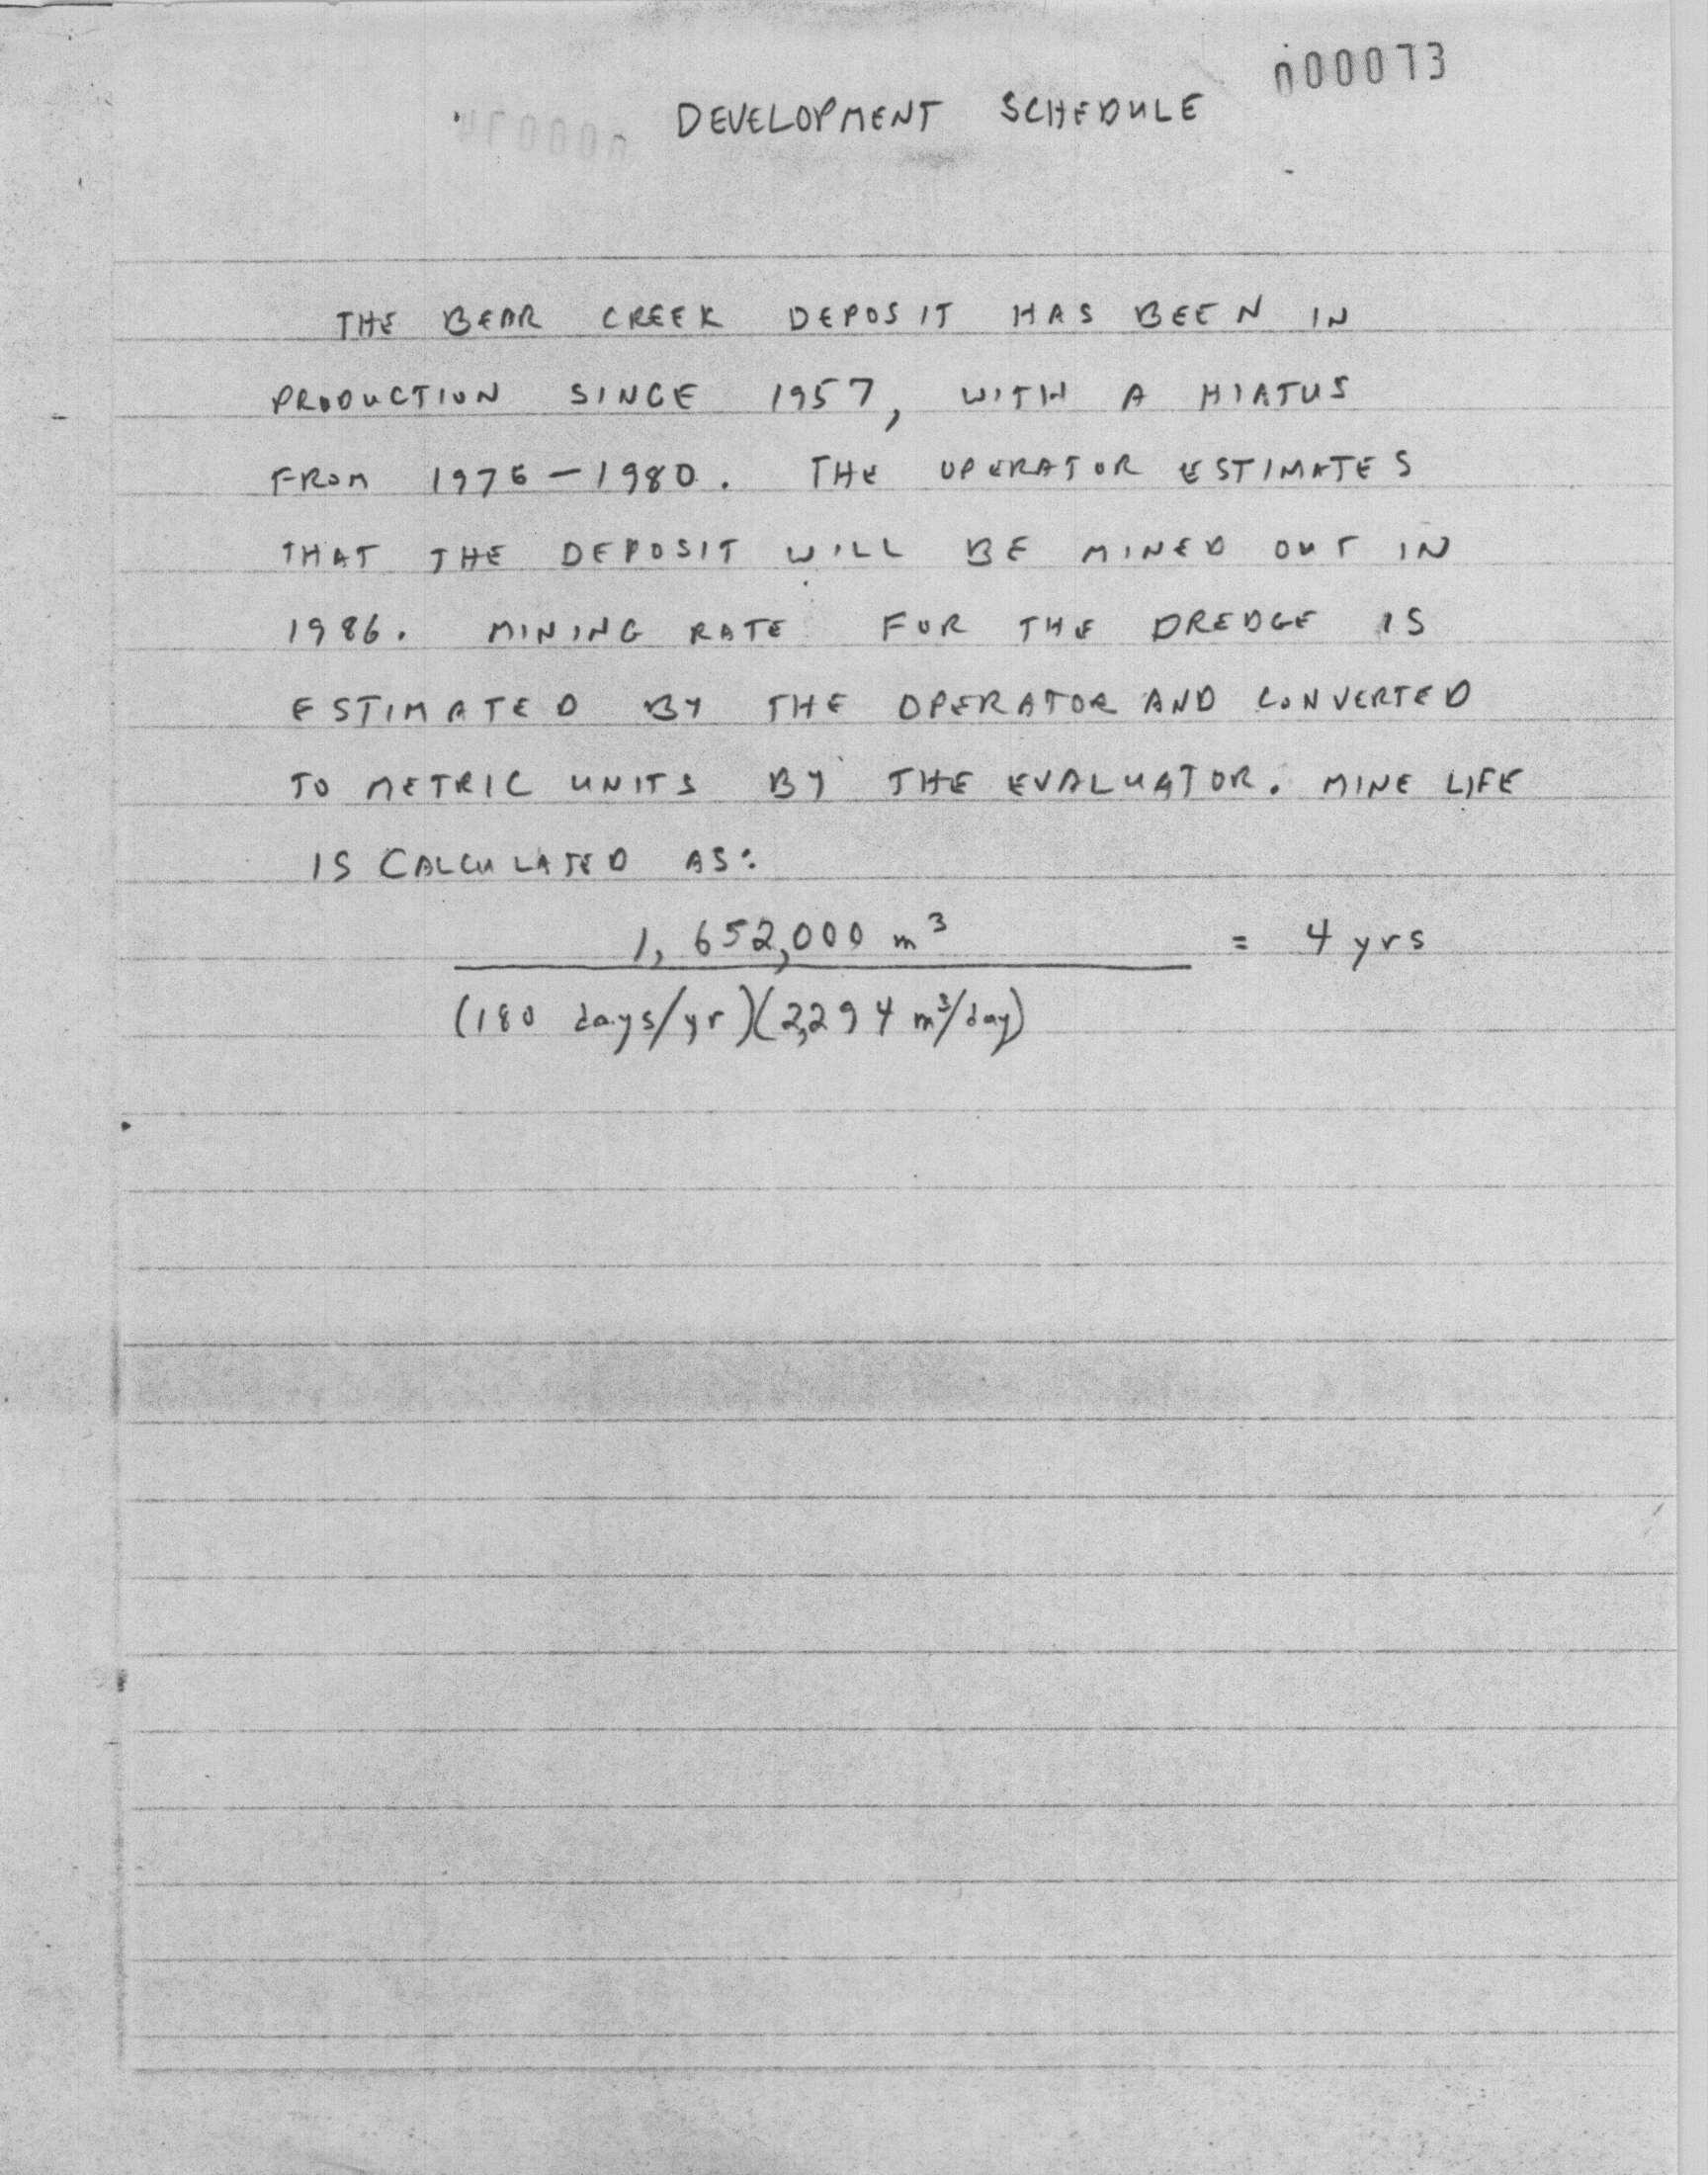 000073
DEVELOPMENT SCHEDULE
THE BEAR CREEK DEPOSIT HAS BEEN IN
PRODUCTION SINCE 1957, WITH A HIATUS
FROM 1976-1980. THE OPERATOR ESTIMATES
THAT THE DEPOSIT WILL BE MINED OUT IN
1986. MINING RATE FOR THE DREDGE IS
ESTIMATED BY THE OPERATOR AND CONVERTED
TO METRIC UNITS BY THE EVALUATOR. MINE LIFE
IS CALCULATED AS:
1,652,000 m³ = 4 yrs
(180 days/yr)(2,294 m³/day)